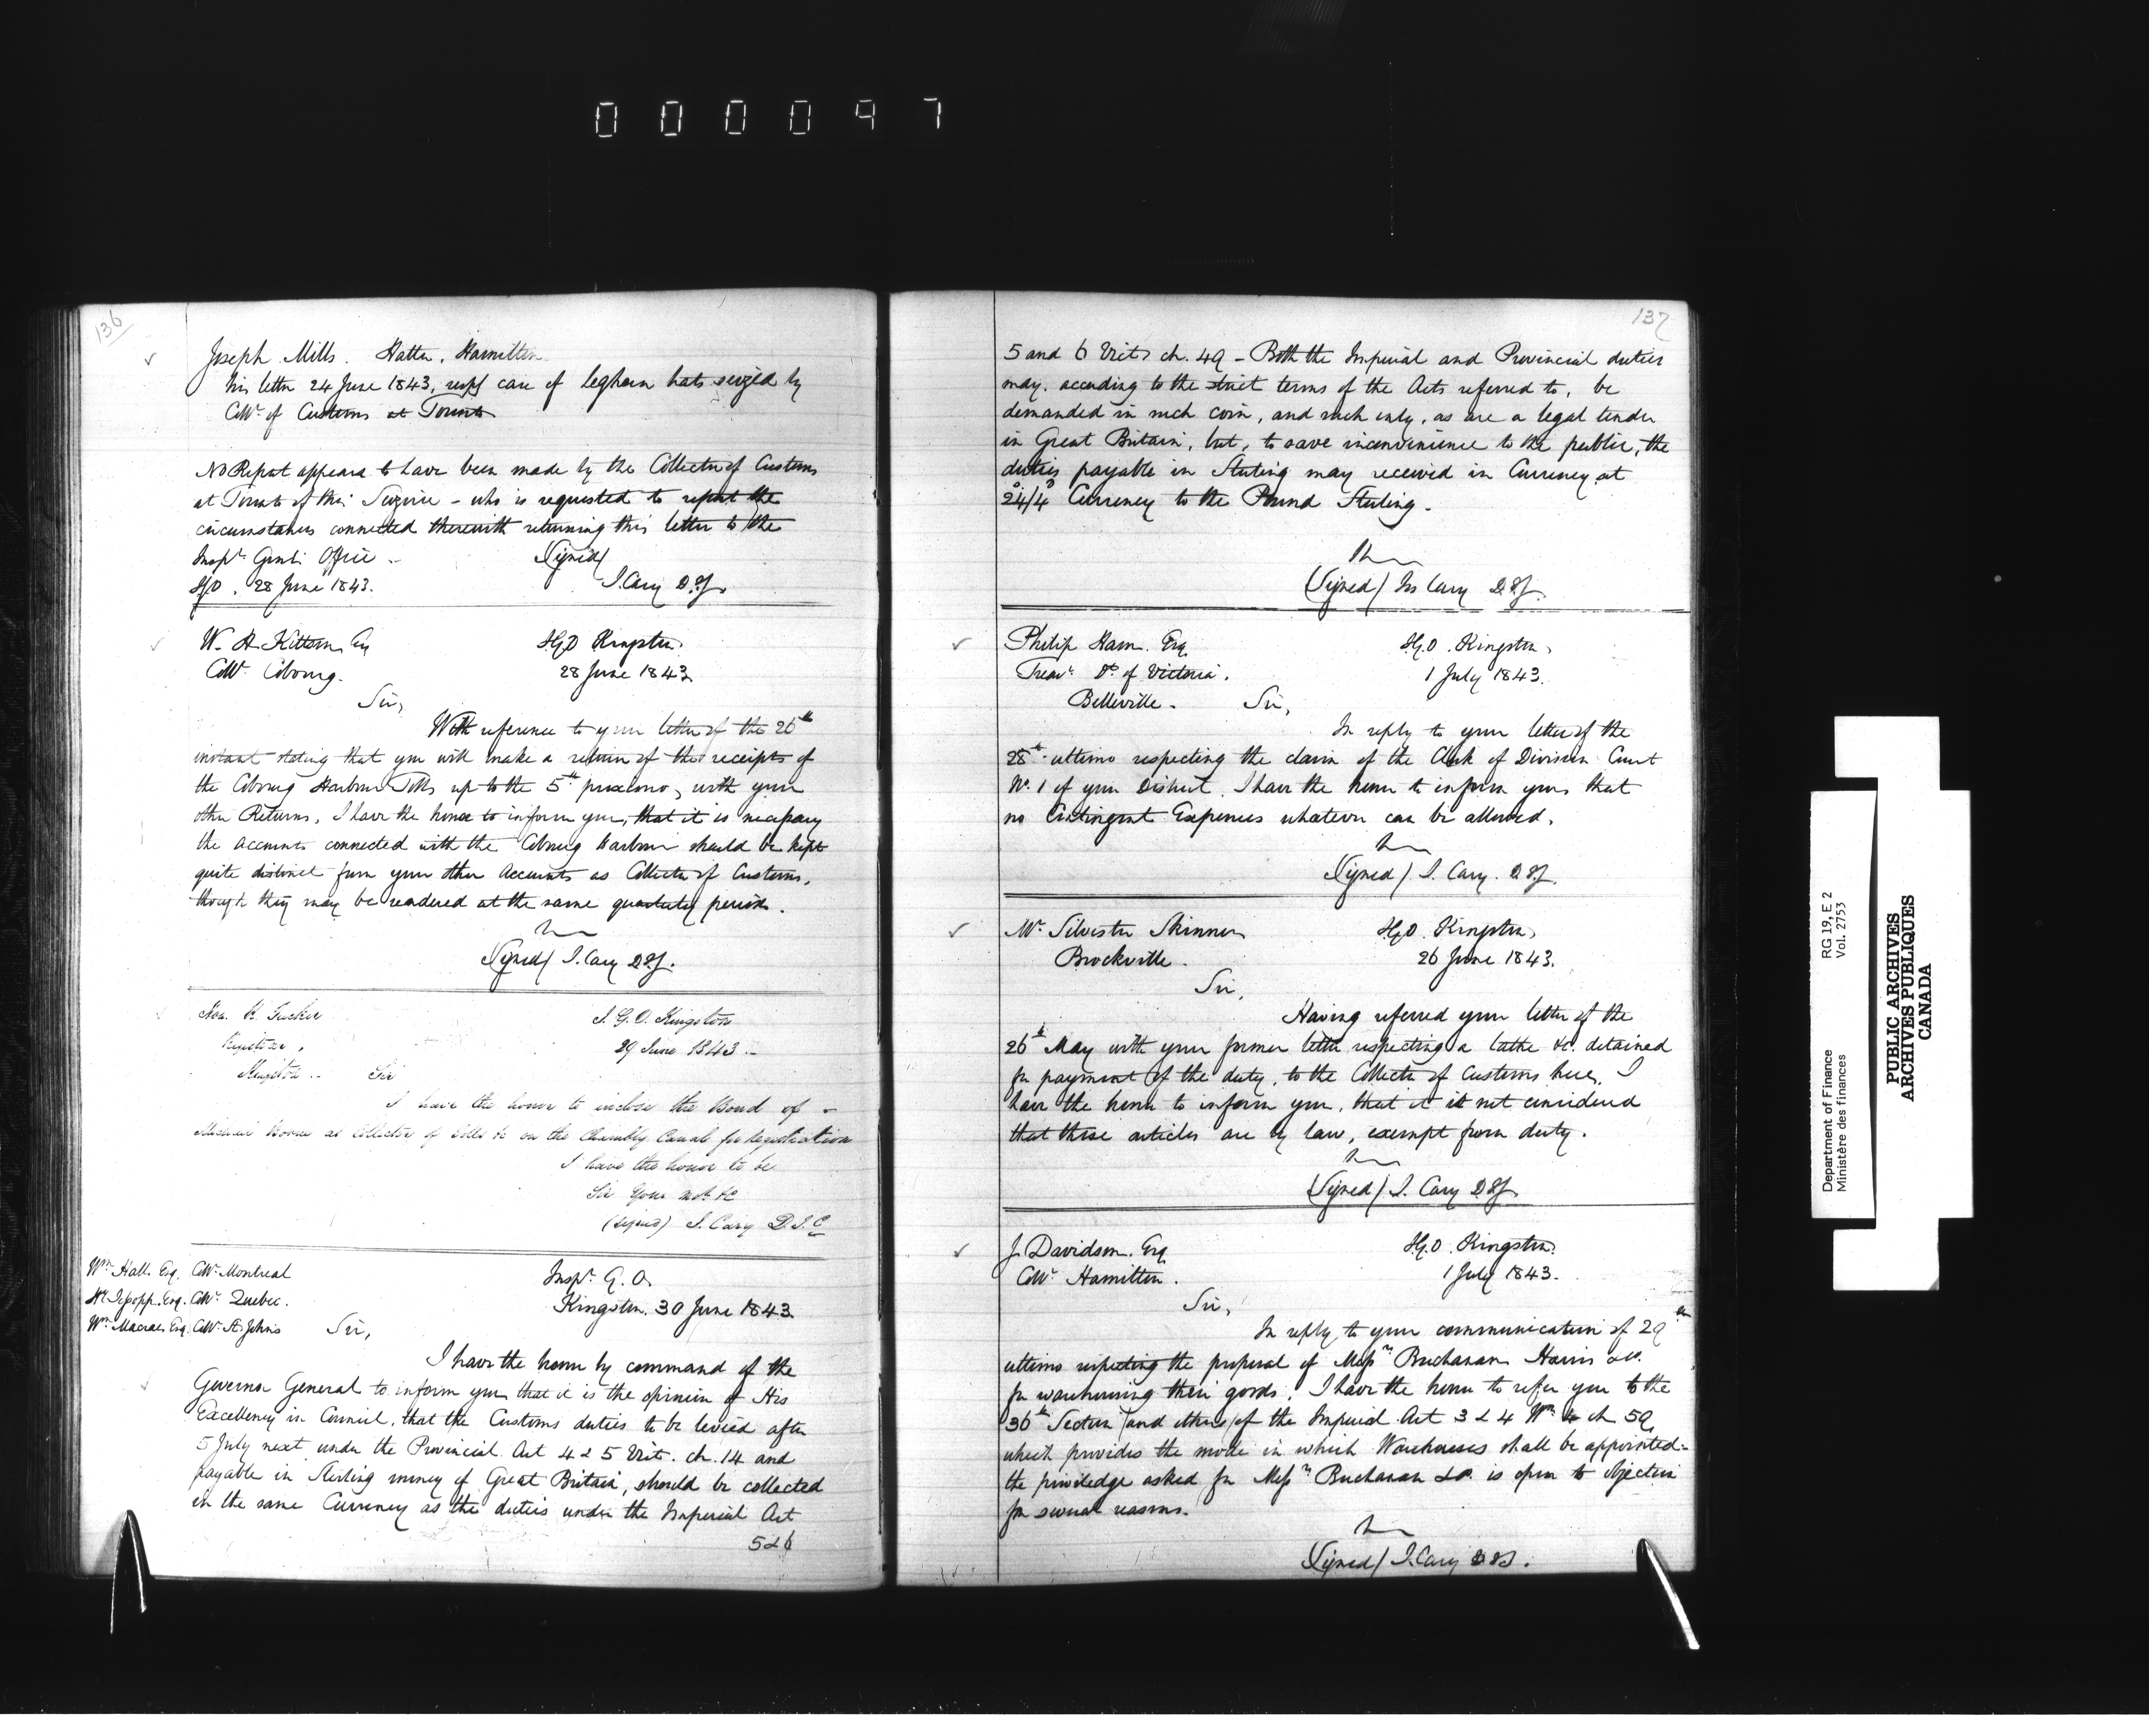 0 0 0 0 9 7
136
Joseph Mills. Hatter, Hamilton
his letter 24 June 1843, respg case of leghorn hats seized by
Collr of Customs at Toronto
No Report appears to have been made by the Collector of Customs
at Toronto of this Seizure - who is requested to report the
circumstances connected therewith returning this letter to the
Inspr Genl's Office -
Signed/
I.G.O. 28 June 1843.
J. Cary D.I.G.
W. H. Kittson Esq
Collr Cobourg.
I.G.O Kingston
28 June 1843
Sir,
With reference to your letter of the 26th
instant stating that you will make a return of the receipts of
the Cobourg Harbour Tolls up to the 5th proximo, with your
other Returns, I have the honor to inform you, that it is necessary
the accounts connected with the Cobourg Harbour should be kept
quite distinct from your other Accounts as Collector of Customs,
though they may be rendered at the same quarterly periods.
Signed/ J. Cary D.I.G.
Hon. R. Tucker
Registrar,
Kingston ..
I.G.O. Kingston
29 June 1843 ..
Sir
I have the honor to inclose the Bond of
as Collector of Tolls &c on the Chambly Canal for Registration
I have the honor to be
Sir Your mo. &c
(signed) J. Cary D.I.G
Wm Hall Esq. Collr Montreal
Hy Jessopp Esq. Collr Quebec.
Wm Macrae Esq. Collr St Johns
Inspr G. O.
Kingston. 30 June 1843
Sir,
I have the honor by command of the
Governor General to inform you that it is the opinion of His
Excellency in Council, that the Customs duties to be levied after
5 July next under the Provincial Act 4 & 5 Vict. ch. 14 and
payable in Sterling money of Great Britain, should be collected
in the same Currency as the duties under the Imperial Act
5 & 6
137
5 and 6 Vict. ch. 49 - Both the Imperial and Provincial duties
may, according to the strict terms of the Acts referred to, be
demanded in such coin, and such only, as are a legal tender
in Great Britain, but, to save inconvenience to the public, the
duties payable in Sterling may received in Currency at
24/4 Currency to the Pound Sterling.
(Signed/ Jos Cary D.I.G.
Philip Ham. Esq.
Treasr Dt of Victoria.
Belleville.
I.G.O. Kingston,
1 July 1843.
Sir,
In reply to your letter of the
28th ultimo respecting the claim of the Clerk of Division Court
No. 1 of your District, I have the honor to inform you that
no Contingent Expenses whatever can be allowed.
Signed/ J. Cary. D.I.G.
Mr Silvester Skinner
Brockville.
I.G.O. Kingston,
26 June 1843.
Sir,
Having referred your letter of the
26th May with your former letter respecting a lathe &c. detained
for payment of the duty, to the Collector of Customs here, I
have the honor to inform you, that it is not considered
that these articles are by law, exempt from duty.
(Signed/ J. Cary D.I.G.
J. Davidson. Esq
Collr Hamilton.
I.G.O. Kingston.
1 July 1843.
Sir,
In reply to your communication of 29th
ultimo respecting the proposal of Messrs Buchanan Harris &Co.
for warehousing their goods. I have the honor to refer you to the
36th Section (and others) of the Imperial Act 3 & 4 Wm 4 ch 59,
which provides the mode in which Warehouses shall be appointed -
the priviledge asked for Messrs Buchanan &Co. is open to objection
for several reasons.
Signed/ J. Cary D.I.G.
Department of Finance
Ministère des finances
RG 19, E 2
Vol. 2753
PUBLIC ARCHIVES
ARCHIVES PUBLIQUES
CANADA